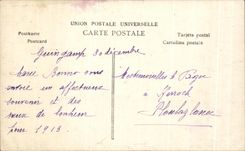 UNION POSTALE UNIVERSELLE
CARTE POSTALE
Postkarte
Postcard
Tarjeta postal
Cartolina postale
Guingamp 30 décembre
Marie Bonno vous
envoie un affectueux
souvenir et des
vœux de bonheur
pour 1913.
Mesdemoiselles Le
à